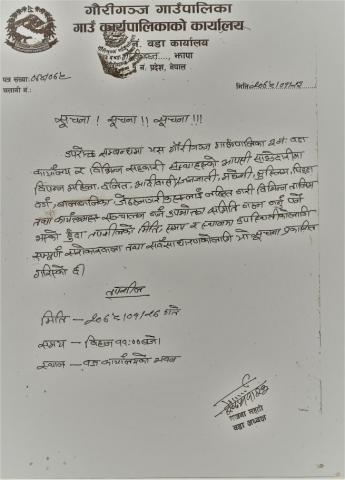 गौरीगञ्ज गाउँपालिका
गाउँ कार्यपालिकाको कार्यालय
नं. वडा कार्यालय
झापा
नं. प्रदेश, नेपाल
पत्र संख्याः
चलानी नं.:
मितिः
सूचना ! सूचना !! सूचना !!!
उपरोक्त सम्बन्धमा यस गौरीगञ्ज गाउँपालिका वडा
कार्यालय र विभिन्न सहकारी संस्थाहरुको आपसी साझेदारीमा
विपन्न महिला, दलित, आदीवासी जनजाती, मधेसी, मुस्लिम, पिछडा
वर्ग, बालबालिका लाई लक्षित गरी विभिन्न तालिम
तथा कार्यक्रमहरु सञ्चालन गर्न उपभोक्ता समिति गठन गर्नु पर्ने
भएको हुँदा तपशिलको मिति, समय र स्थानमा उपस्थितिकोलागी
सम्पूर्ण सरोकारवाला तथा सर्वसाधारणकोलागी यो सूचना प्रकाशित
गरिएको छ।
तपशिल
मिति - गते
समय - बिहान ११:०० बजे।
स्थान - वडा कार्यालयको भवन
वडा अध्यक्ष